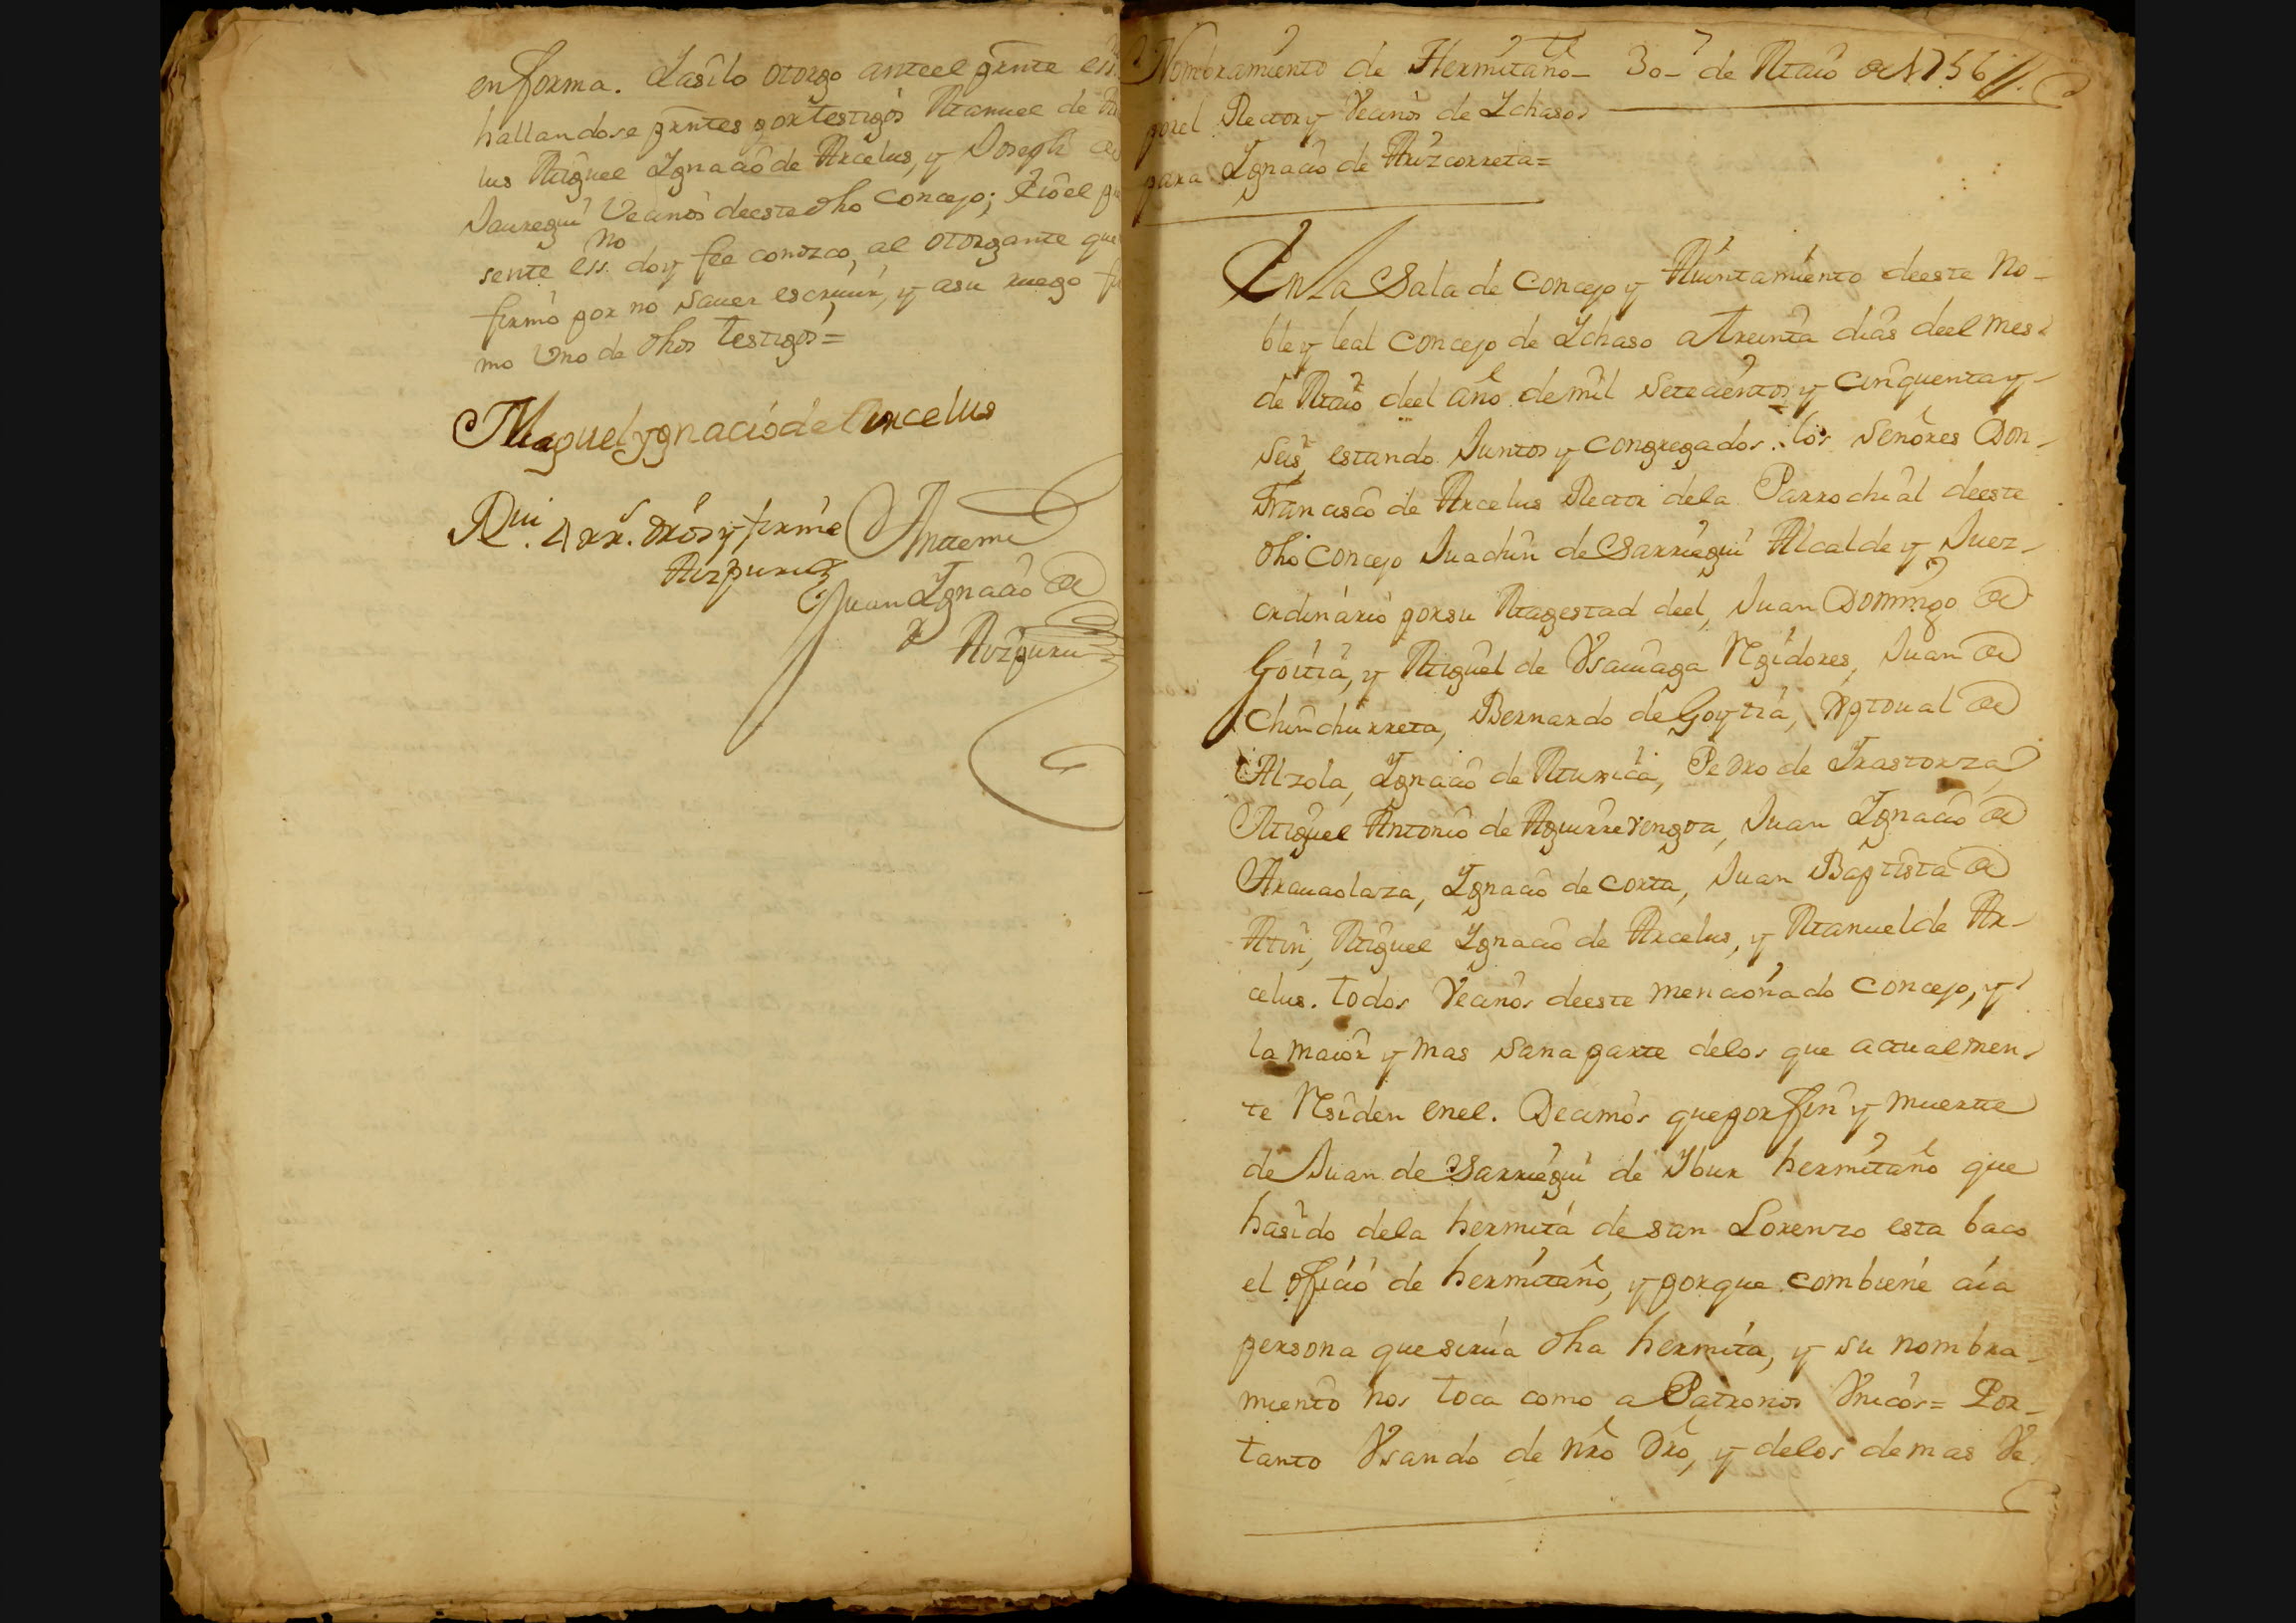 en forma. Y asi lo otorgo ante el prnte ess.
hallandose prntes por testigos Manuel de
lus Miguel Ygnacio de Arcelus, y Joseph de
Jauregui Vecinos deeste dho Concejo; E io el
sente ess.no doy fee conozco, al otorgante que
firmó por no saver escriuir, y asu ruego
mo Uno de dhos testigos=
Miguel ygnacio de Arcelus
Rui. 4 rr.s dros y firme
Aizpuru
Antemi
Juan Ygnacio de
Aizpuru
Nombramiento de Hermitaño_ 30_ de Maio de 1756//.
porel Rector y Vecinos de Ychaso
para Ygnacio de Aizcorreta=
En La Sala de Concejo y Aiuntamiento deeste No_
ble y leal Concejo de Ychaso a treinta dias deel mes
de Maio deel año de mil setecientos y cinquenta y_
seis, estando Juntos y congregados los señores Don_
Francisco de Arcelus Rector dela Parrochial deeste
dho Concejo Juachin de Sarriegui Alcalde y Juez_
ordinario porsu Magestad deel, Juan Domingo de
Goitia, y Miguel de Vsauiaga Rejidores, Juan de
Chinchurreta, Bernardo de Goytia, Xptoual de
Alzola, Ygnacio de Mujica, Pedro de Yrastorza
Miguel Antonio de Aguirrevengoa, Juan Ygnacio de
Arauaolaza, Ygnacio de corta, Juan Baptista de
Min, Miguel Ygnacio de Arcelus, y Manuel de Ar_
celus. todos Vecinos deeste mencionado concejo, y
la maior y mas sana parte delos que actualmen
te Residen enel. Decimos que por ffin y muerte
de Juan de Sarriegui de Ybur hermitaño que
hasido dela hermita de san Lorenzo esta baco
el oficio de hermitaño, y porque combiene aia
persona que sirua dha hermita, y su nombra_
miento nos toca como a Patronos Vnicos= Por_
tanto Vsando de nro dro, y delos demas Ve